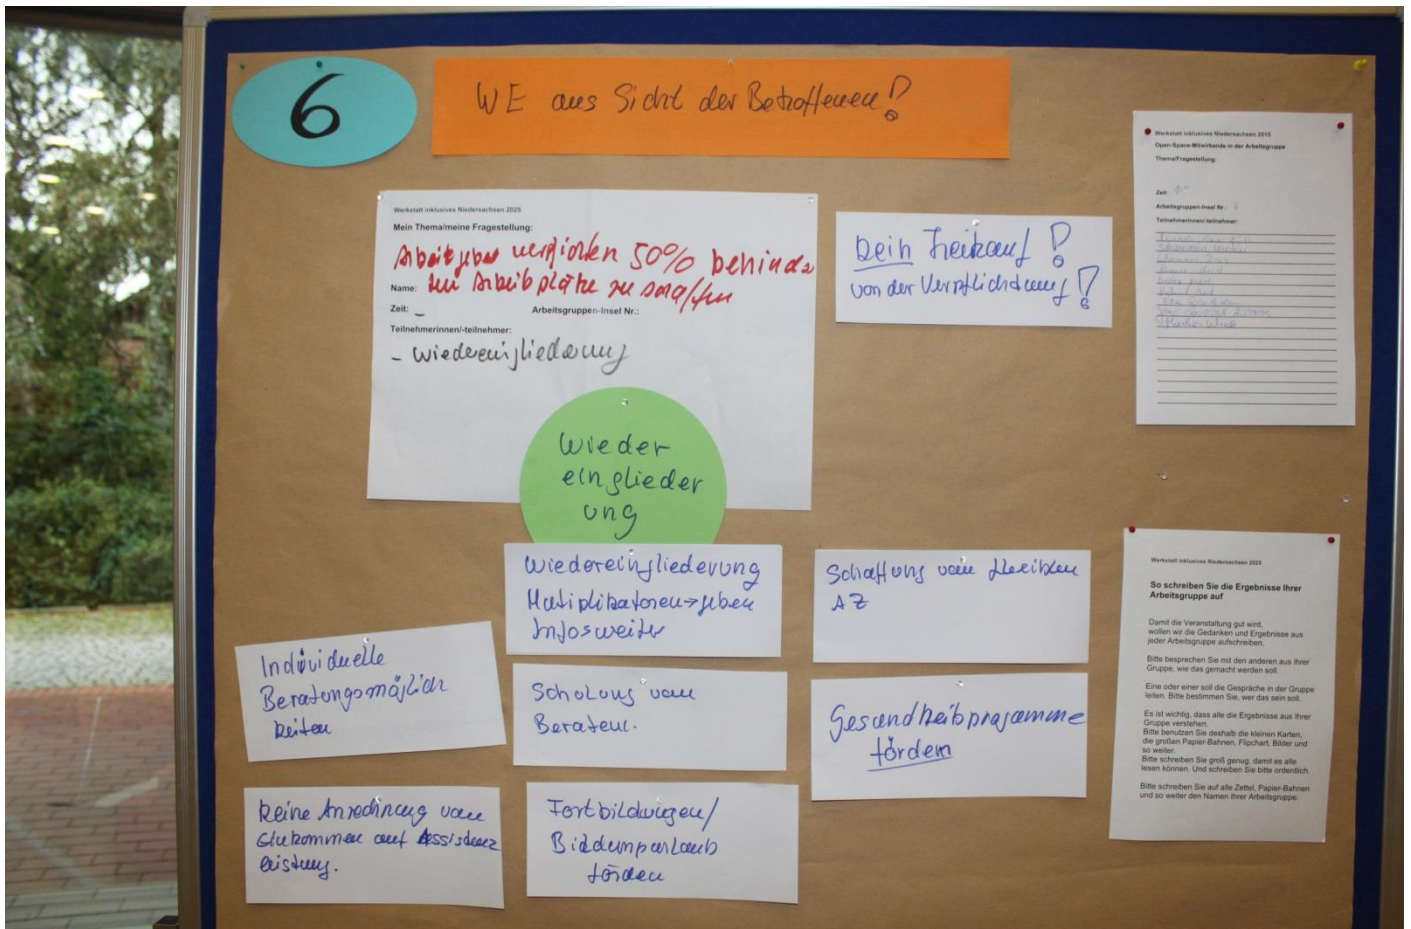 6
WE aus Sicht der Betroffenen!
Werkstatt inklusives Niedersachsen 2025
Mein Thema/meine Fragestellung:
Arbeitgeber 50% behinde
Name: Arbeitsplätze zu schaffen
Zeit: _ Arbeitsgruppen-Insel Nr.:
Teilnehmerinnen/-teilnehmer:
- Wiedereingliederung
Kein Freikauf!
von der Verpflichtung!
Werkstatt inklusives Niedersachsen 2015
Open-Space-Mitwirkende in der Arbeitsgruppe
Thema/Fragestellung:
Zeit:
Arbeitsgruppen-Insel Nr.:
Teilnehmerinnen/-teilnehmer:
Wieder
einglieder
ung
Wiedereingliederung
Multiplikatoren→geben
Infos weiter
Schaffung von flexiblen
AZ
Individuelle
Beratungsmöglich
keiten
Schulung von
Beratern.
Gesundheitsprogramme
fördern
Keine Anrechnung von
Einkommen auf Assistenz
leistung.
Fortbildungen/
Bildungsurlaub
fördern
Werkstatt inklusives Niedersachsen 2025
So schreiben Sie die Ergebnisse Ihrer
Arbeitsgruppe auf
Damit die Veranstaltung gut wird,
wollen wir die Gedanken und Ergebnisse aus
jeder Arbeitsgruppe aufschreiben.
Bitte besprechen Sie mit den anderen aus Ihrer
Gruppe, wie das gemacht werden soll.
Eine oder einer soll die Gespräche in der Gruppe
leiten. Bitte bestimmen Sie, wer das sein soll.
Es ist wichtig, dass alle die Ergebnisse aus Ihrer
Gruppe verstehen.
Bitte benutzen Sie deshalb die kleinen Karten,
die großen Papier-Bahnen, Flipchart, Bilder und
so weiter.
Bitte schreiben Sie groß genug, damit es alle
lesen können. Und schreiben Sie bitte ordentlich.
Bitte schreiben Sie auf alle Zettel, Papier-Bahnen
und so weiter den Namen Ihrer Arbeitsgruppe.